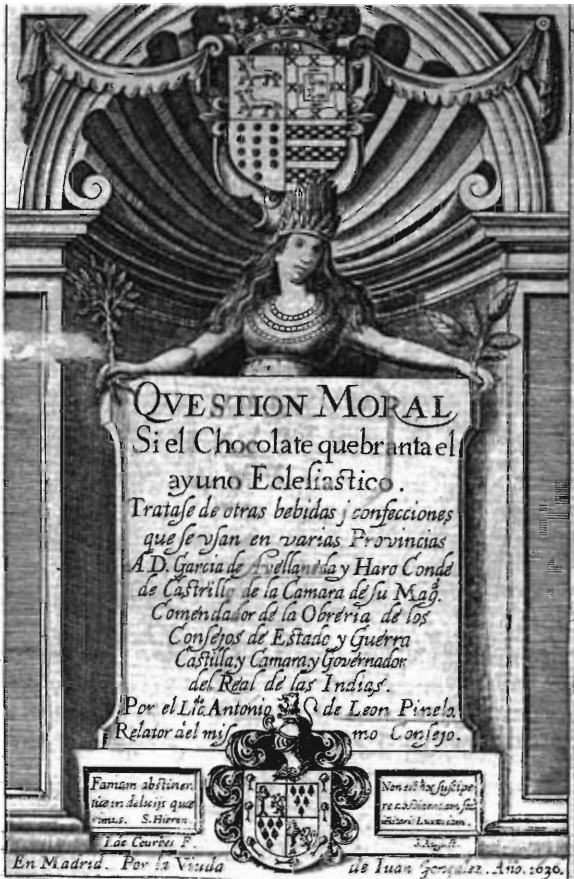 QVESTION MORAL
Si el Chocolate quebranta el
ayuno Eclesiastico.
Tratase de otras bebidas j confecciones
que se vsan en varias Provincias
A D. Garcia de Avellaneda y Haro Conde
de Castrillo de la Camara de su Magᵈ.
Comendador de la Obreria, de los
Consejos de Estado y Guerra
Castilla, y Camara, y Governador
del Real de las Indias.
Por el Licᵈᵒ Antonio de Leon Pinelo.
Relator del mismo Consejo.
Famam abstinen
tiæ in delicijs quæ
rimus. S. Hieron.
Non est hoc suscipe
re abstinentiam, sed
Luxuriam.
S. August.
I. de Courbes F.
En Madrid. Por la Viuda de Iuan Gonçalez. Año. 1636.